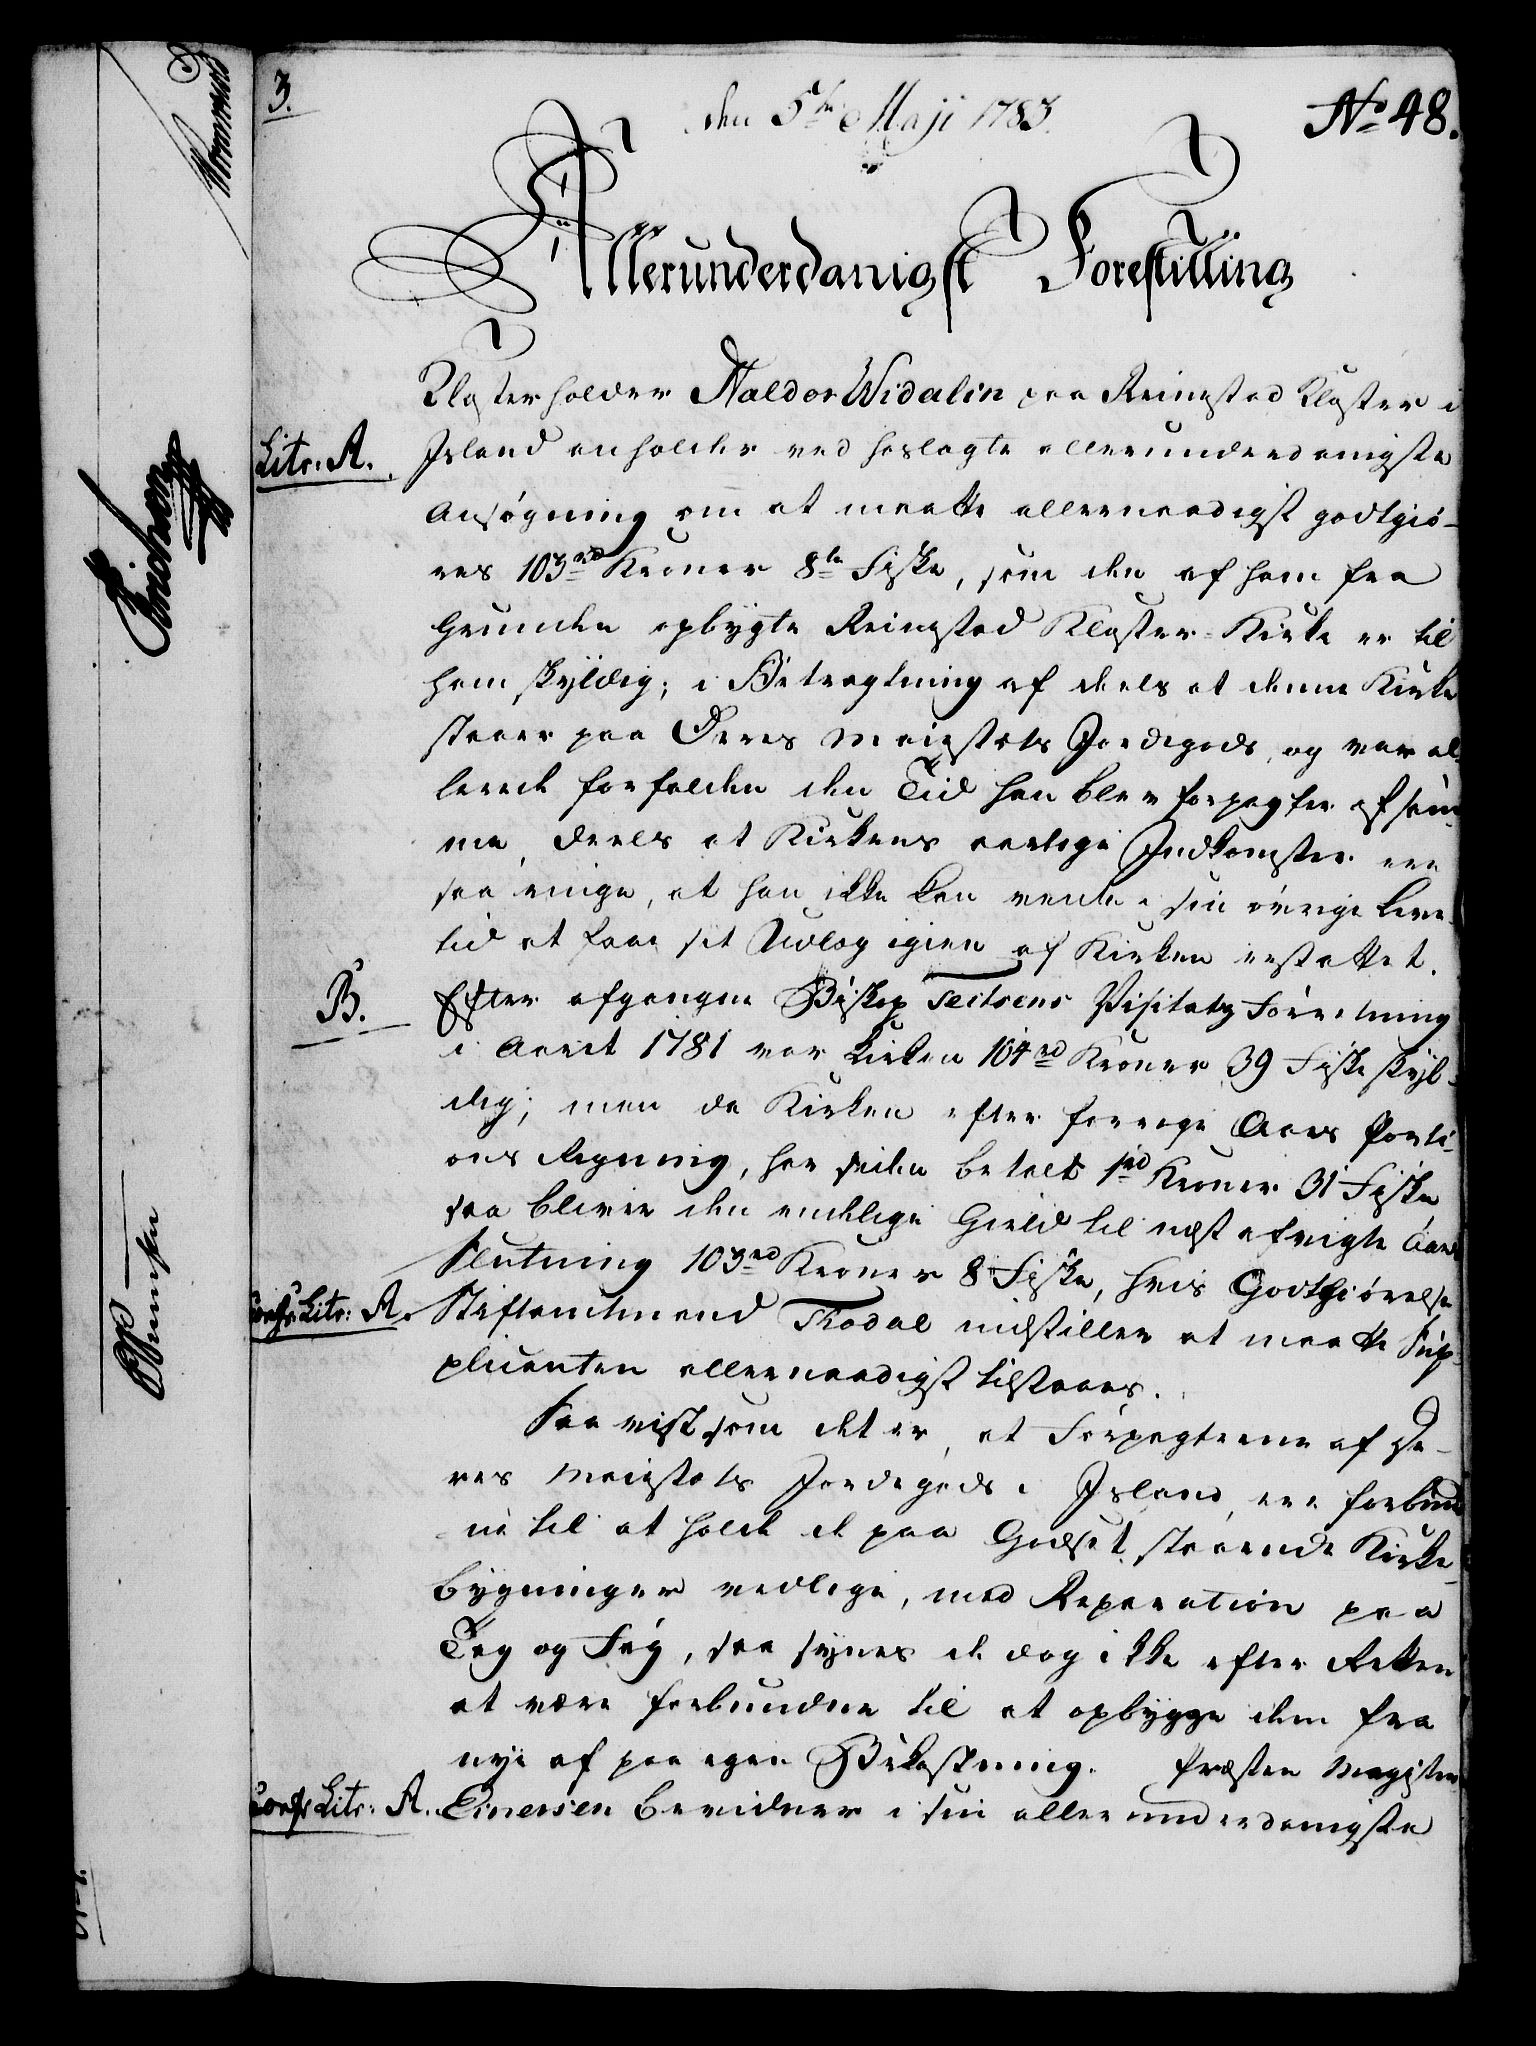 3.
den 5te Maji 1783.
No 48.
Allerunderdanigst Forestilling
Klosterholder Haldor Widalin paa Reinestad Kloster i
Litr: A.
Island anholder ved hoslagte allerunderdanigste
Ansøgning om at maatte allernaadigst godtgiø-
res 103rd Kroner 8te Fiske, som den af ham fra
Grunden opbygte Reinestad Kloster-Kirke er til
ham skyldig; i Betragtning af deels at denne Kirke
staaer paa Deres Majestæts Jordegods, og var al-
lerede forfalden den Tid han blev Forpagter af sam-
me, deels at Kirkens aarlige Indkomster ere
saa ringe, at han ikke kan vente i sin øvrige Leve-
tid at faae sit Udlæg igien af Kirken erstattet.
B.
Efter afgangne Biskop Teitsens Visitatz Forretning
i Aaret 1781 var Kirken 104rd Kroner 39 Fiske skyl-
dig; men da Kirken efter forrige Aars Porti-
ons Regning, har siden betalt 1rd Kroner 31 Fiske
saa bliver den endelige Gield til næst afvigte Aars
Slutning 103rd Kroner 8 Fiske, hvis Godtgiørelse
confr Litr: A.
Stiftamtmand Thodal indstiller at maatte Sup-
plicanten allernaadigst tilstaaes.
Saa vist som det er, at Forpagterne af De-
res Majestæts Jordegods i Island ere forbund-
ne til at holde de paa Godset staaende Kirke-
bygninger vedlige, med Reparation paa
Tag og Fag, saa synes de dog ikke efter Retten
at være forbundne til at opbygge dem fra
nye af paa egen Bekostning. Præsten Magister
confr Litr: A.
Einersen bevidner i sin allerunderdanigste
Erichsen